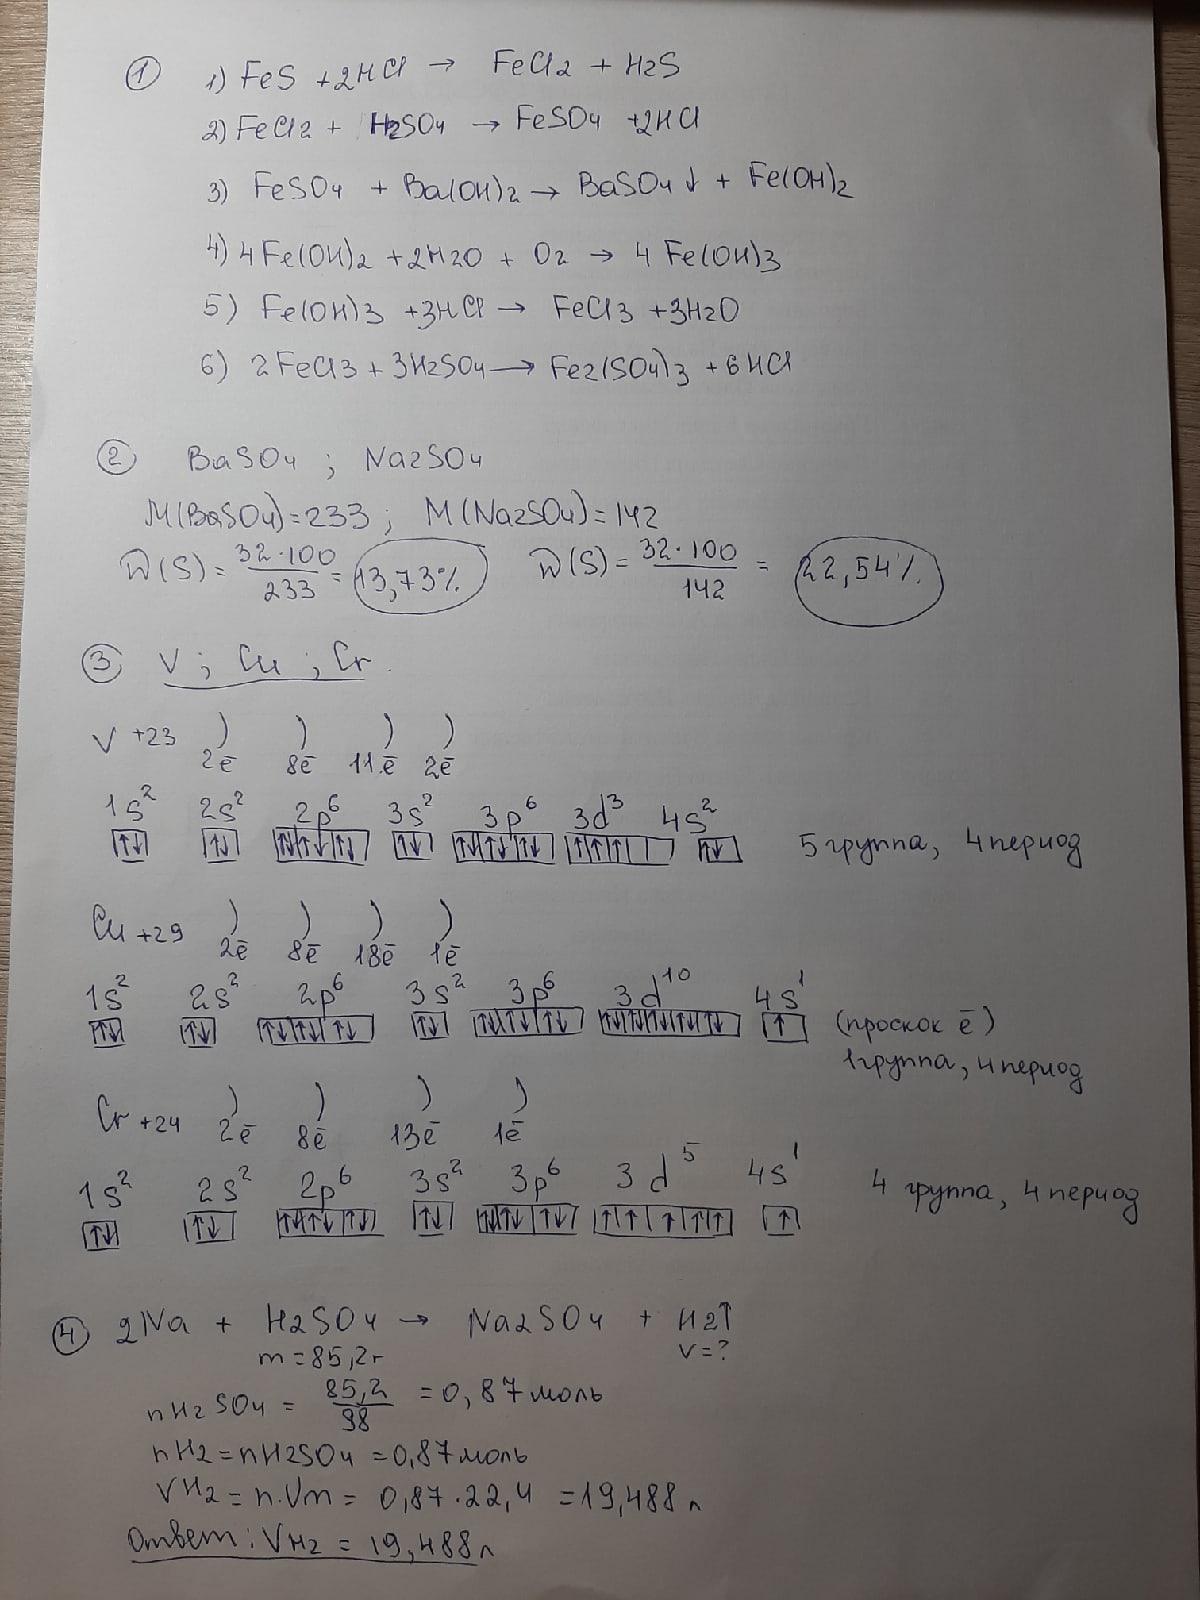 ① 1) FeS + 2HCl → FeCl2 + H2S
2) FeCl2 + H2SO4 → FeSO4 + 2HCl
3) FeSO4 + Ba(OH)2 → BaSO4↓ + Fe(OH)2
4) 4Fe(OH)2 + 2H2O + O2 → 4 Fe(OH)3
5) Fe(OH)3 + 3HCl → FeCl3 + 3H2O
6) 2FeCl3 + 3H2SO4 → Fe2(SO4)3 + 6HCl
② BaSO4 ; Na2SO4
M(BaSO4)=233 ; M(Na2SO4)=142
W(S) = 32·100/233 = 13,73% W(S) = 32·100/142 = 22,54%
③ V ; Cu ; Cr.
V +23 ) ) ) )
2ē 8ē 11ē 2ē
1s² 2s² 2p⁶ 3s² 3p⁶ 3d³ 4s²
↑↓ ↑↓ ↑↓↑↓↑↓ ↑↓ ↑↓↑↓↑↓ ↑↑↑ ↑↓ 5 группа, 4 период
Cu +29 ) ) ) )
2ē 8ē 18ē 1ē
1s² 2s² 2p⁶ 3s² 3p⁶ 3d¹⁰ 4s¹
↑↓ ↑↓ ↑↓↑↓↑↓ ↑↓ ↑↓↑↓↑↓ ↑↓↑↓↑↓↑↓↑↓ ↑ (проскок ē)
1 группа, 4 период
Cr +24 ) ) ) )
2ē 8ē 13ē 1ē
1s² 2s² 2p⁶ 3s² 3p⁶ 3d⁵ 4s¹ 4 группа, 4 период
↑↓ ↑↓ ↑↓↑↓↑↓ ↑↓ ↑↓↑↓↑↓ ↑↑↑↑↑ ↑
④ 2Na + H2SO4 → Na2SO4 + H2↑
m = 85,2г V=?
nH2SO4 = 85,2/98 = 0,87 моль
nH2 = nH2SO4 = 0,87 моль
VH2 = n·Vm = 0,87·22,4 = 19,488 л
Ответ: VH2 = 19,488л